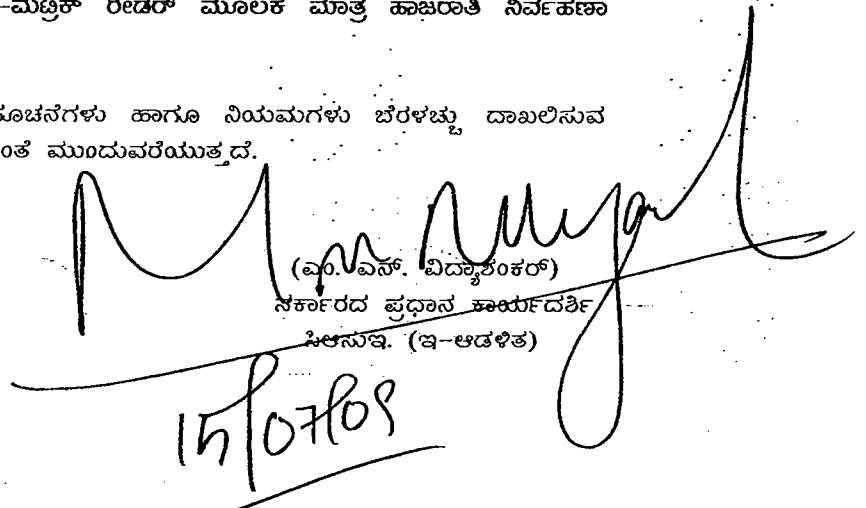 -ಮೆಟ್ರಿಕ್ ರೀಡರ್ ಮೂಲಕ ಮಾತ್ರ ಹಾಜರಾತಿ ನಿರ್ವಹಣಾ
ಸೂಚನೆಗಳು ಹಾಗೂ ನಿಯಮಗಳು ಬೆರಳಚ್ಚು ದಾಖಲಿಸುವ
ಂತೆ ಮುಂದುವರೆಯುತ್ತದೆ.
(ಎಂ. ಎನ್. ವಿದ್ಯಾಶಂಕರ್)
ಸರ್ಕಾರದ ಪ್ರಧಾನ ಕಾರ್ಯದರ್ಶಿ
ಸಿಆಸುಇ. (ಇ-ಆಡಳಿತ)
15/07/09